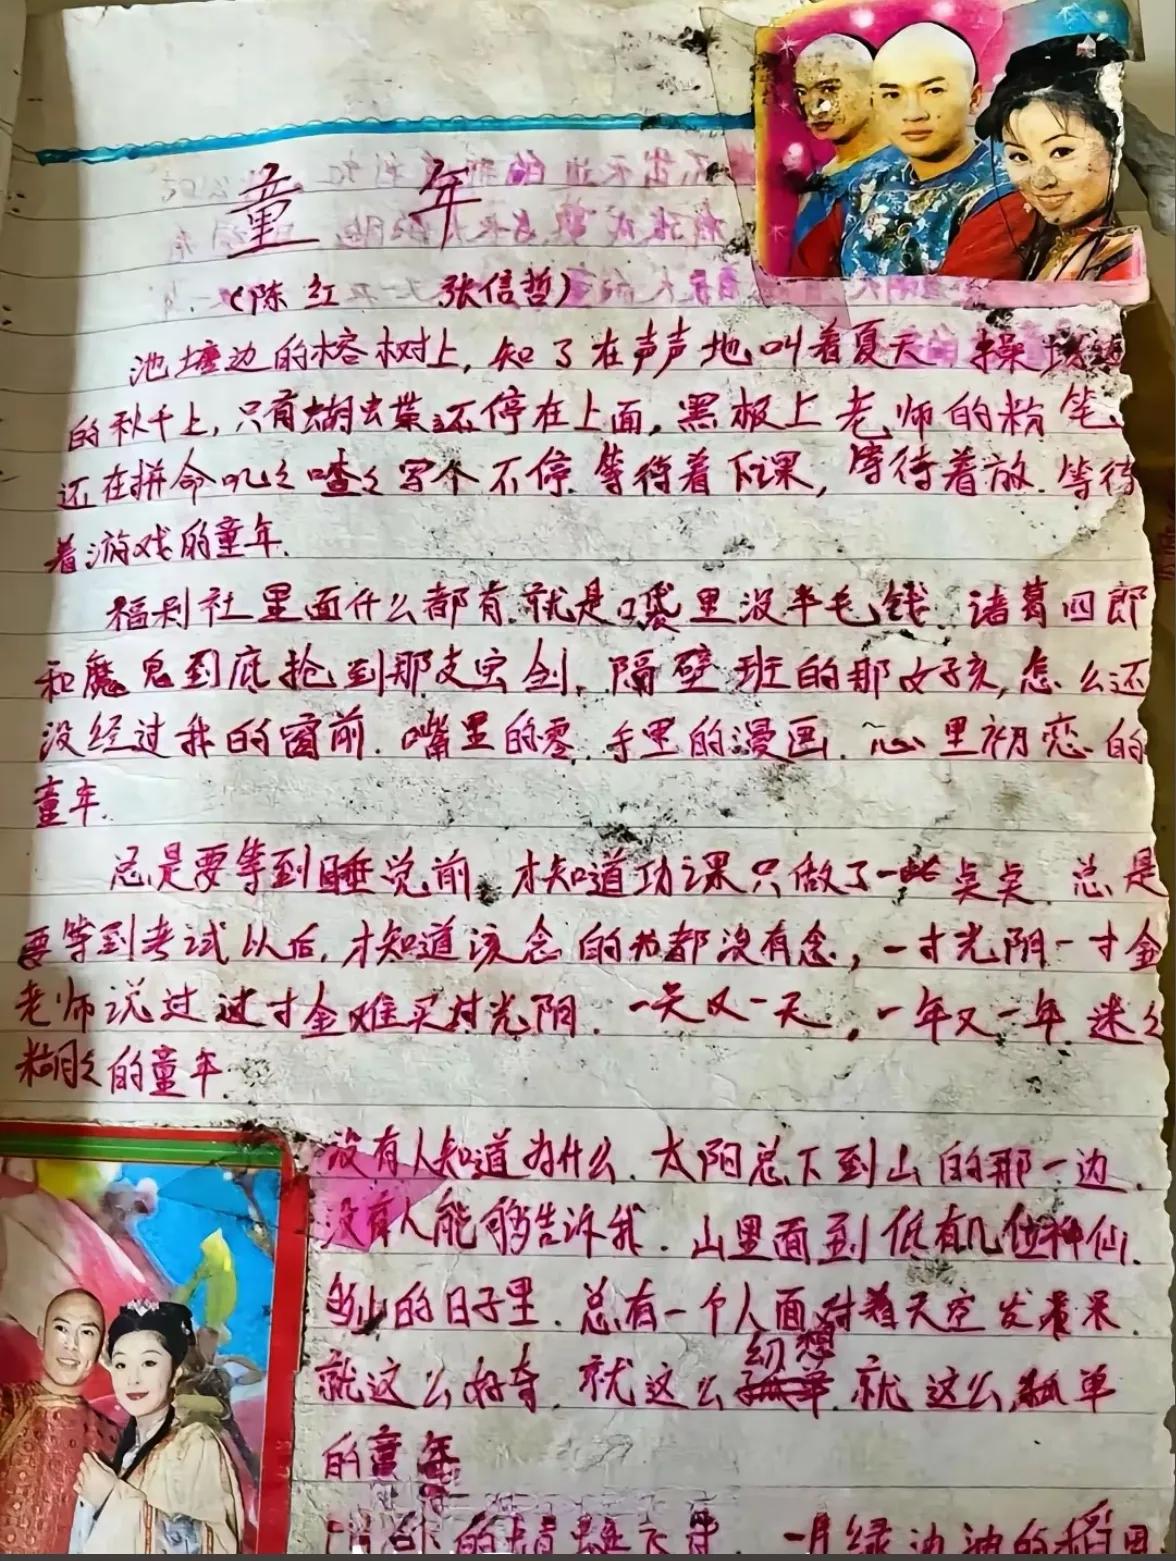 童年
(陈红 张信哲)
池塘边的榕树上,知了在声声地叫着夏天.操场
的秋千上,只有蝴蝶还停在上面,黑板上老师的粉笔.
还在拼命叽々喳々写个不停.等待着下课,等待着放.等待
着游戏的童年.
福利社里面什么都有.就是口袋里没半毛钱.诸葛四郎
和魔鬼到底抢到那支宝剑.隔壁班的那女孩,怎么还
没经过我的窗前.嘴里的零.手里的漫画.心里初恋的
童年.
总是要等到睡觉前.才知道功课只做了一点点.总是
要等到考试以后.才知道该念的书都没有念,一寸光阴一寸金
老师说过过寸金难买寸光阴.一天又一天,一年又一年.迷々
糊々的童年.
没有人知道为什么.太阳总下到山的那一边.
没有人能够告诉我.山里面到低有几位神仙.
的日子里.总有一个人面对着天空发着呆.
就这么好奇.就这么幻想.就这么孤单
的童年
的蜻蜓
一片绿油油的稻田